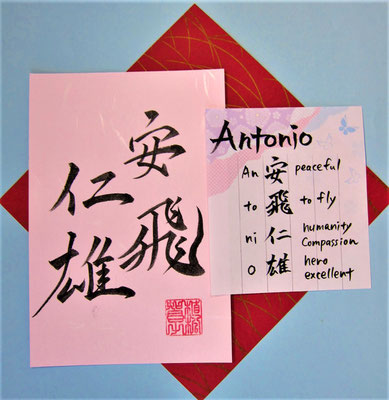 安飛
仁雄
Antonio
An 安 peaceful
to 飛 to fly
ni 仁 humanity
Compassion
O 雄 hero
excellent